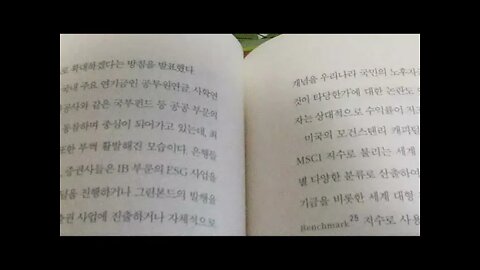 로 확대하겠다는 방침을 발표했다.
국내 주요 연기금인 공무원연금, 사학연
공사와 같은 국부펀드 등 공공 부문의
동참하며 중심이 되어가고 있는데, 최
또한 부쩍 활발해진 모습이다. 은행들
증권사들은 IB 부문의 ESG 사업을
딩을 진행하거나 그린본드의 발행을
사업에 진출하거나 자체적으로
개념을 우리나라 국민의 노후자금
것이 타당한가에 대한 논란도
자는 상대적으로 수익률이
미국의 모건스탠리 캐피털
MSCI 지수로 불리는 세계
별 다양한 분류로 산출하여
기금을 비롯한 세계 대형
Benchmark25 지수로 사용